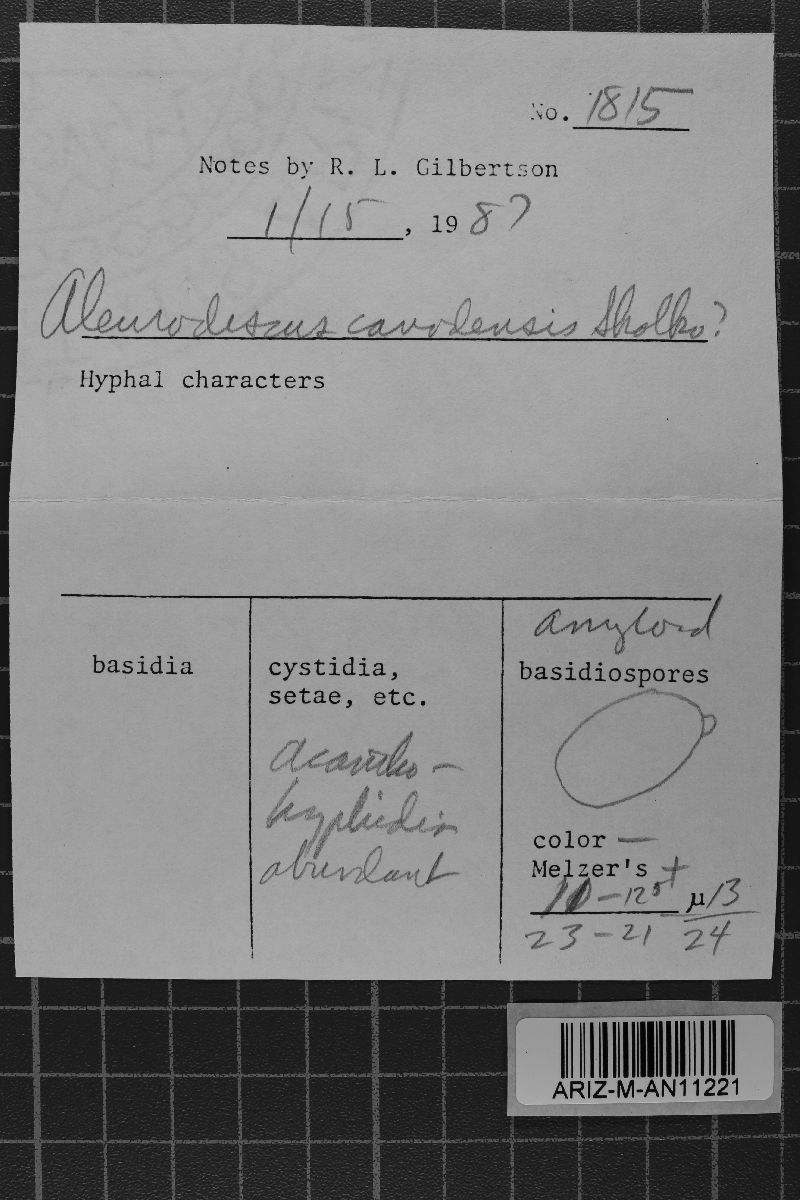 No. 1815
Notes by R. L. Gilbertson
1/15, 198?
Aleurodiscus canadensis Skolko?
Hyphal characters
amyloid
basidia
cystidia,
setae, etc.
basidiospores
acantho-
hyphidia
abundant
color —
Melzer's +
10-12⁵ µ/13
23-21 24
ARIZ-M-AN11221